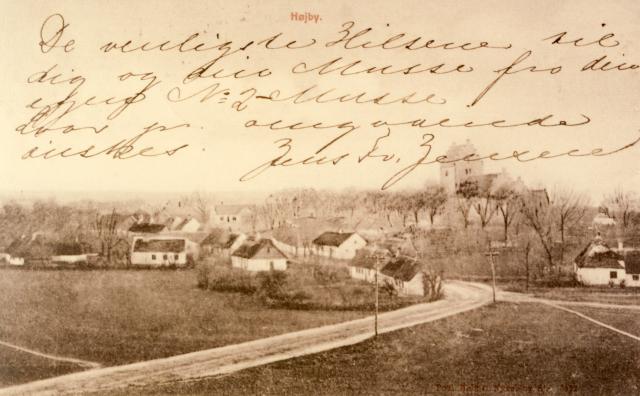 Højby.
De venligste Hilsener til
dig og din Musse fra din
egen No 2 Musse
Svar pr. omgaaende
ønskes. Jens Fr. Jensen